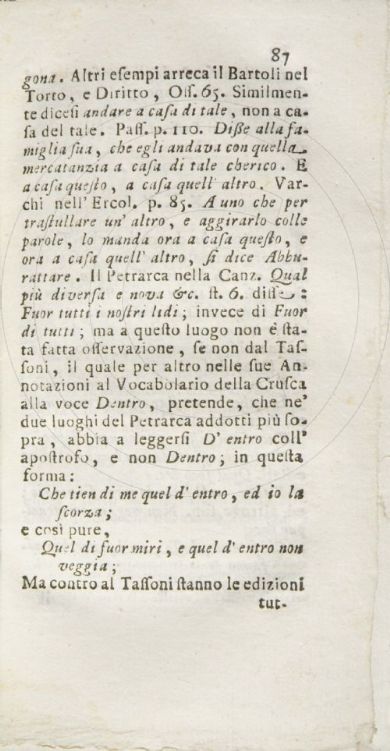 87
gona. Altri esempi arreca il Bartoli nel
Torto, e Diritto, Oss. 65. Similmen-
te dicesi andare a casa di tale, non a ca-
sa del tale. Pass. p. 110. Disse alla fa-
miglia sua, che egli andava con quella
mercatanzia a casa di tale cherico. E
a casa questo, a casa quell' altro. Var-
chi nell' Ercol. p. 85. A uno che per
trastullare un' altro, e aggirarlo colle
parole, lo manda ora a casa questo, e
ora a casa quell' altro, si dice Abbu-
rattare. Il Petrarca nella Canz. Qual
più diversa e nova &c. st. 6. disse:
Fuor tutti i nostri lidi; invece di Fuor
di tutti; ma a questo luogo non è sta-
ta fatta osservazione, se non dal Tas-
soni, il quale per altro nelle sue An-
notazioni al Vocabolario della Crusca
alla voce Dentro, pretende, che ne'
due luoghi del Petrarca addotti più so-
pra, abbia a leggersi D' entro coll'
apostrofo, e non Dentro; in questa
forma:
Che tien di me quel d' entro, ed io la
scorza;
e così pure,
Quel di fuor miri, e quel d' entro non
veggia;
Ma contro al Tassoni stanno le edizioni
tut-